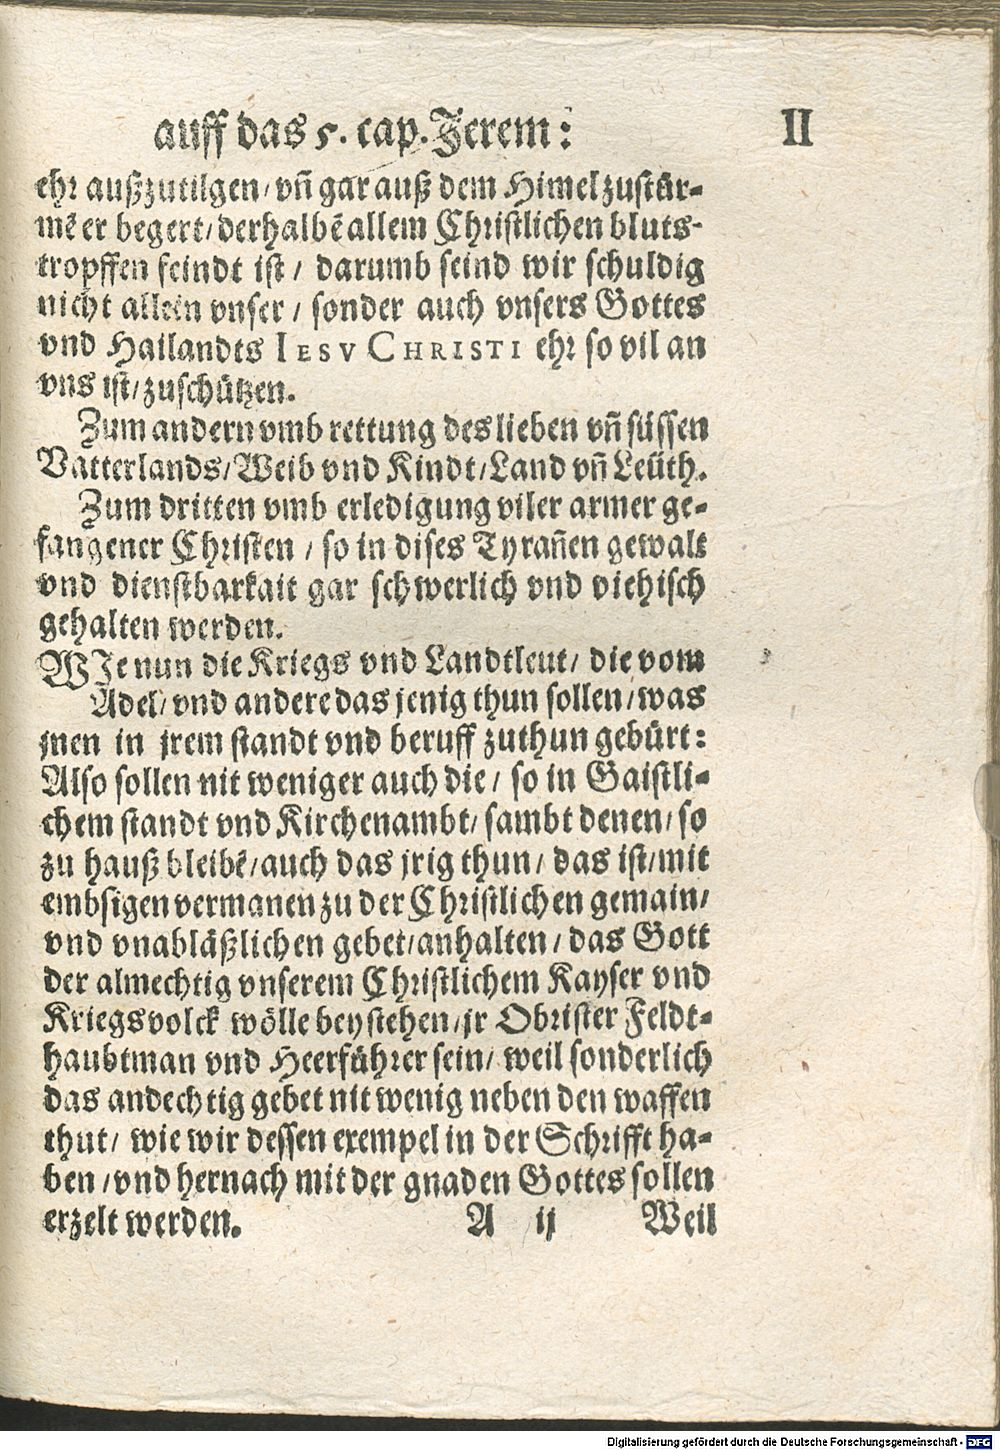 auff das 5. cap. Jerem: II
ehr außzutilgen/ vñ gar auß dem Himel zustür-
mē er begert/ derhalbē allem Christlichen bluts-
tropffen feindt ist / darumb seind wir schuldig
nicht allein vnser / sonder auch vnsers Gottes
vnd Hailandts IESV CHRISTI ehr so vil an
vns ist/ zuschützen.
Zum andern vmb rettung des lieben vñ süssen
Vatterlands/ Weib vnd Kindt/ Land vñ Leüth.
Zum dritten vmb erledigung viler armer ge-
fangener Christen / so in dises Tyrañen gewalt
vnd dienstbarkait gar schwerlich vnd viehisch
gehalten werden.
WJe nun die Kriegs vnd Landtleut/ die vom
Adel/ vnd andere das jenig thun sollen/ was
jnen in jrem standt vnd beruff zuthun gebürt:
Also sollen nit weniger auch die / so in Gaistli-
chem standt vnd Kirchenambt/ sambt denen/ so
zu hauß bleibē/ auch das jrig thun/ das ist/ mit
embsigen vermanen zu der Christlichen gemain/
vnd vnabläßlichen gebet/ anhalten / das Gott
der almechtig vnserem Christlichem Kayser vnd
Kriegsvolck wölle beystehen/ jr Obrister Feldt-
haubtman vnd Heerführer sein/ weil sonderlich
das andechtig gebet nit wenig neben den waffen
thut/ wie wir dessen exempel in der Schrifft ha-
ben / vnd hernach mit der gnaden Gottes sollen
erzelt werden. A ij Weil
Digitalisierung gefördert durch die Deutsche Forschungsgemeinschaft - DFG